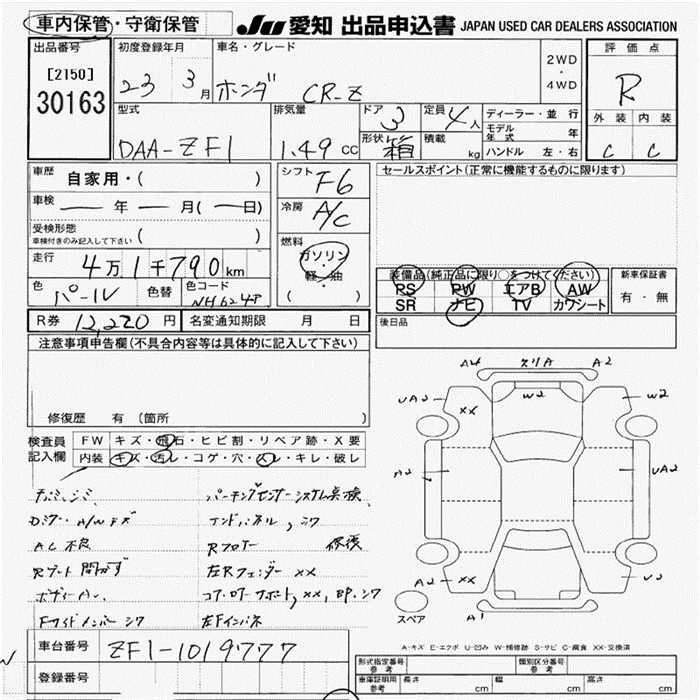 車内保管・守衛保管 JU 愛知 出品申込書 JAPAN USED CAR DEALERS ASSOCIATION
出品番号 初度登録年月 車名・グレード 2WD・4WD 評価点
[2150] 23 3月 ホンダ CR-Z R
30163
型式 排気量 ドア 3 定員 4人 ディーラー・並行 外装 内装
モデル年式 年
DAA-ZF1 1.49cc 形状 箱 積載 kg ハンドル 左・右 C C
車歴 自家用・( ) シフト F6 セールスポイント(正常に機能するものに限ります)
車検 年 月( 日) 冷房 A/C
受検形態 ( )
車検付きのみ記入して下さい
燃料 ガソリン・軽・油 ( )
走行 4万1千790km
装備品(純正品に限り○をつけてください) 新車保証書
色 パール 色替 色コード NH624P
RS PW エアB AW 有・無
SR ナビ TV カワシート
R券 12,220円 名変通知期限 月 日 後日品
注意事項申告欄(不具合内容等は具体的に記入して下さい)
A4 スリA A2
UA2 XX W2 W2
修復歴 有(箇所 )
検査員記入欄 FW キズ・飛石・ヒビ割・リペア跡・X要
内装 キズ・汚レ・コゲ・穴・スレ・キレ・破レ
A2 UA2
パーキングセンサーシステム点検
Dミラー A/Wキズ エンドパネル,シワ
AC不良 Rフロアー 修復
Rゲート開かず 左Rフェンダー XX
A2 XX
コアロアーサポート,XX,BP.シワ
A1
スペア
Fサイドメンバーシワ 左Fインパネ
車台番号 ZF1-1019777
A-キズ E-エクボ U-凹み W-補修跡 S-サビ C-腐食 XX-交換済
登録番号 形式指定番号 参考 類別区分番号 参考
車庫証明用 参考 長さ cm 幅 cm 高さ cm